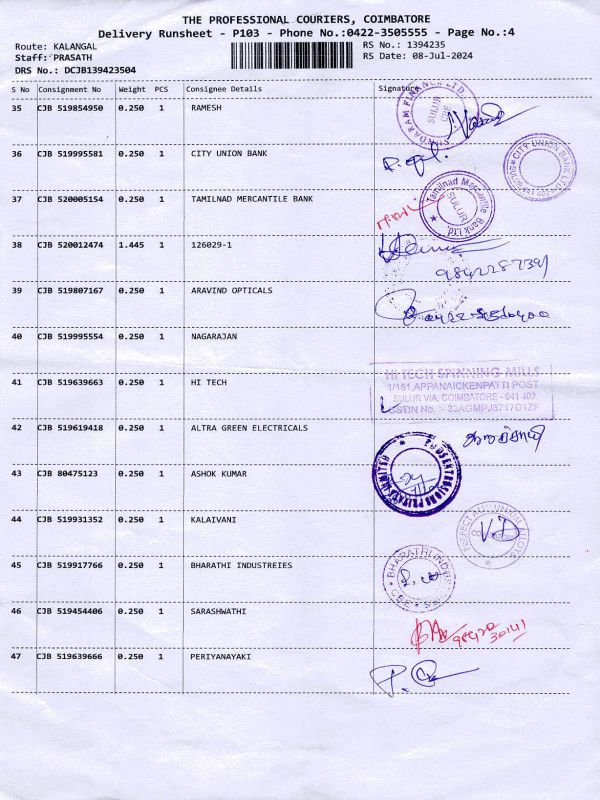 THE PROFESSIONAL COURIERS, COIMBATORE
Delivery Runsheet - P103 - Phone No.:0422-3505555 - Page No.:4
Route: KALANGAL RS No.: 1394235
Staff: PRASATH RS Date: 08-Jul-2024
DRS No.: DCJB139423504
S No Consignment No Weight PCS Consignee Details Signature
35 CJB 519854950 0.250 1 RAMESH
SULUR
36 CJB 519995581 0.250 1 CITY UNION BANK
CITY UNION BANK LTD
37 CJB 520005154 0.250 1 TAMILNAD MERCANTILE BANK
Tamilnad Mercantile Bank Ltd.
SULUR
38 CJB 520012474 1.445 1 126029-1
9842287391
39 CJB 519807167 0.250 1 ARAVIND OPTICALS
40 CJB 519995554 0.250 1 NAGARAJAN
41 CJB 519639663 0.250 1 HI TECH
HI TECH SPINNING MILLS
1/161,APPANAICKENPATTI POST
SULUR VIA, COIMBATORE - 641 402.
GSTIN No. :- 33AGMPJ8717D1ZF
42 CJB 519619418 0.250 1 ALTRA GREEN ELECTRICALS
43 CJB 80475123 0.250 1 ASHOK KUMAR
44 CJB 519931352 0.250 1 KALAIVANI
V.D
45 CJB 519917766 0.250 1 BHARATHI INDUSTREIES
46 CJB 519454406 0.250 1 SARASHWATHI
47 CJB 519639666 0.250 1 PERIYANAYAKI